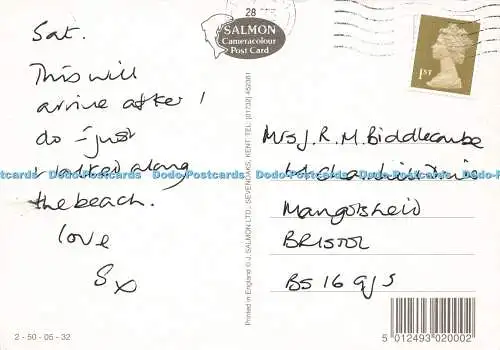 Sat.
This will
arrive after I
do - just
walked along
the beach.
love
S x
2 - 50 - 05 - 32
28
SALMON
Cameracolour
Post Card
Printed in England © J. SALMON LTD., SEVENOAKS, KENT TEL: (01732) 452381
1ST
Mrs J. R. M. Biddlecombe
Mangotsfield
BRISTOL
BS16 9JS
5 012493 020002
Dodo-Postcards Dodo-Postcards Dodo-Postcards Dodo-Postcards Dodo-Postcards Dodo-Postcards
Dodo-Postcards Dodo-Postcards Dodo-Postcards Dodo-Postcards Dodo-Postcards Dodo-Postcards